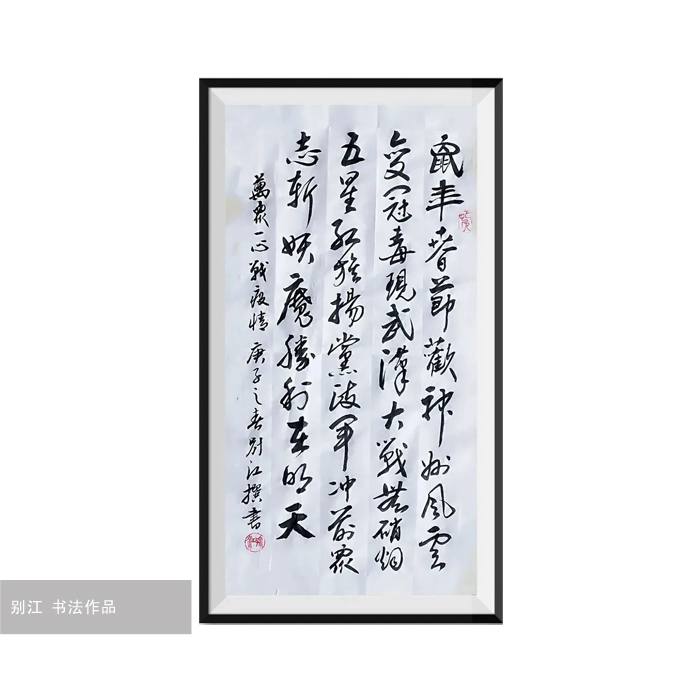 鼠年春節歡神州風雲
變冠毒現武漢大戰無硝烟
五星紅旗揚黨政軍冲前眾
志斬妖魔勝利在明天
萬眾一心戰疫情 庚子之春別江撰書
别江 书法作品